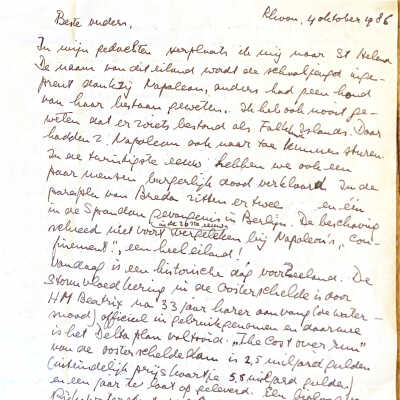 Rhoon, 4 oktober 1986
Beste ouders,
In mijn gedachten verplaats ik mij naar St Helena
De naam van dit eiland wordt de schooljeugd inge-
prent dankzij Napoleon, anders had geen hond
van haar bestaan geweten. Ik heb ook nooit ge-
weten dat er zoiets bestond als Falklandslands. Daar
hadden z. Napoleon ook naar toe kunnen sturen.
In de twintigste eeuw hebben we ook een
paar mensen burgerlijk dood verklaard. In de
van Breda zitten er twee en één
in de Spandau gevangenis in Berlijn. De beschaving
in de 20ste eeuw
schreed niet voort vergeleken bij Napoleon's „con-
finement", een heel eiland!
Vandaag is een historische dag voor Zeeland. De
Stormvloedkering in de Oosterschelde is door
HM Beatrix na 33 jaar harer aanvang (de water-
snood) officieel in gebruik genomen en daarmee
is het Deltaplan voltooid. „The Cost over run"
van de oosterscheldedam is 2,5 miljard gulden
(uiteindelijk prijskaartje 5,8 miljard gulden)
en een jaar te laat op geleverd. Een